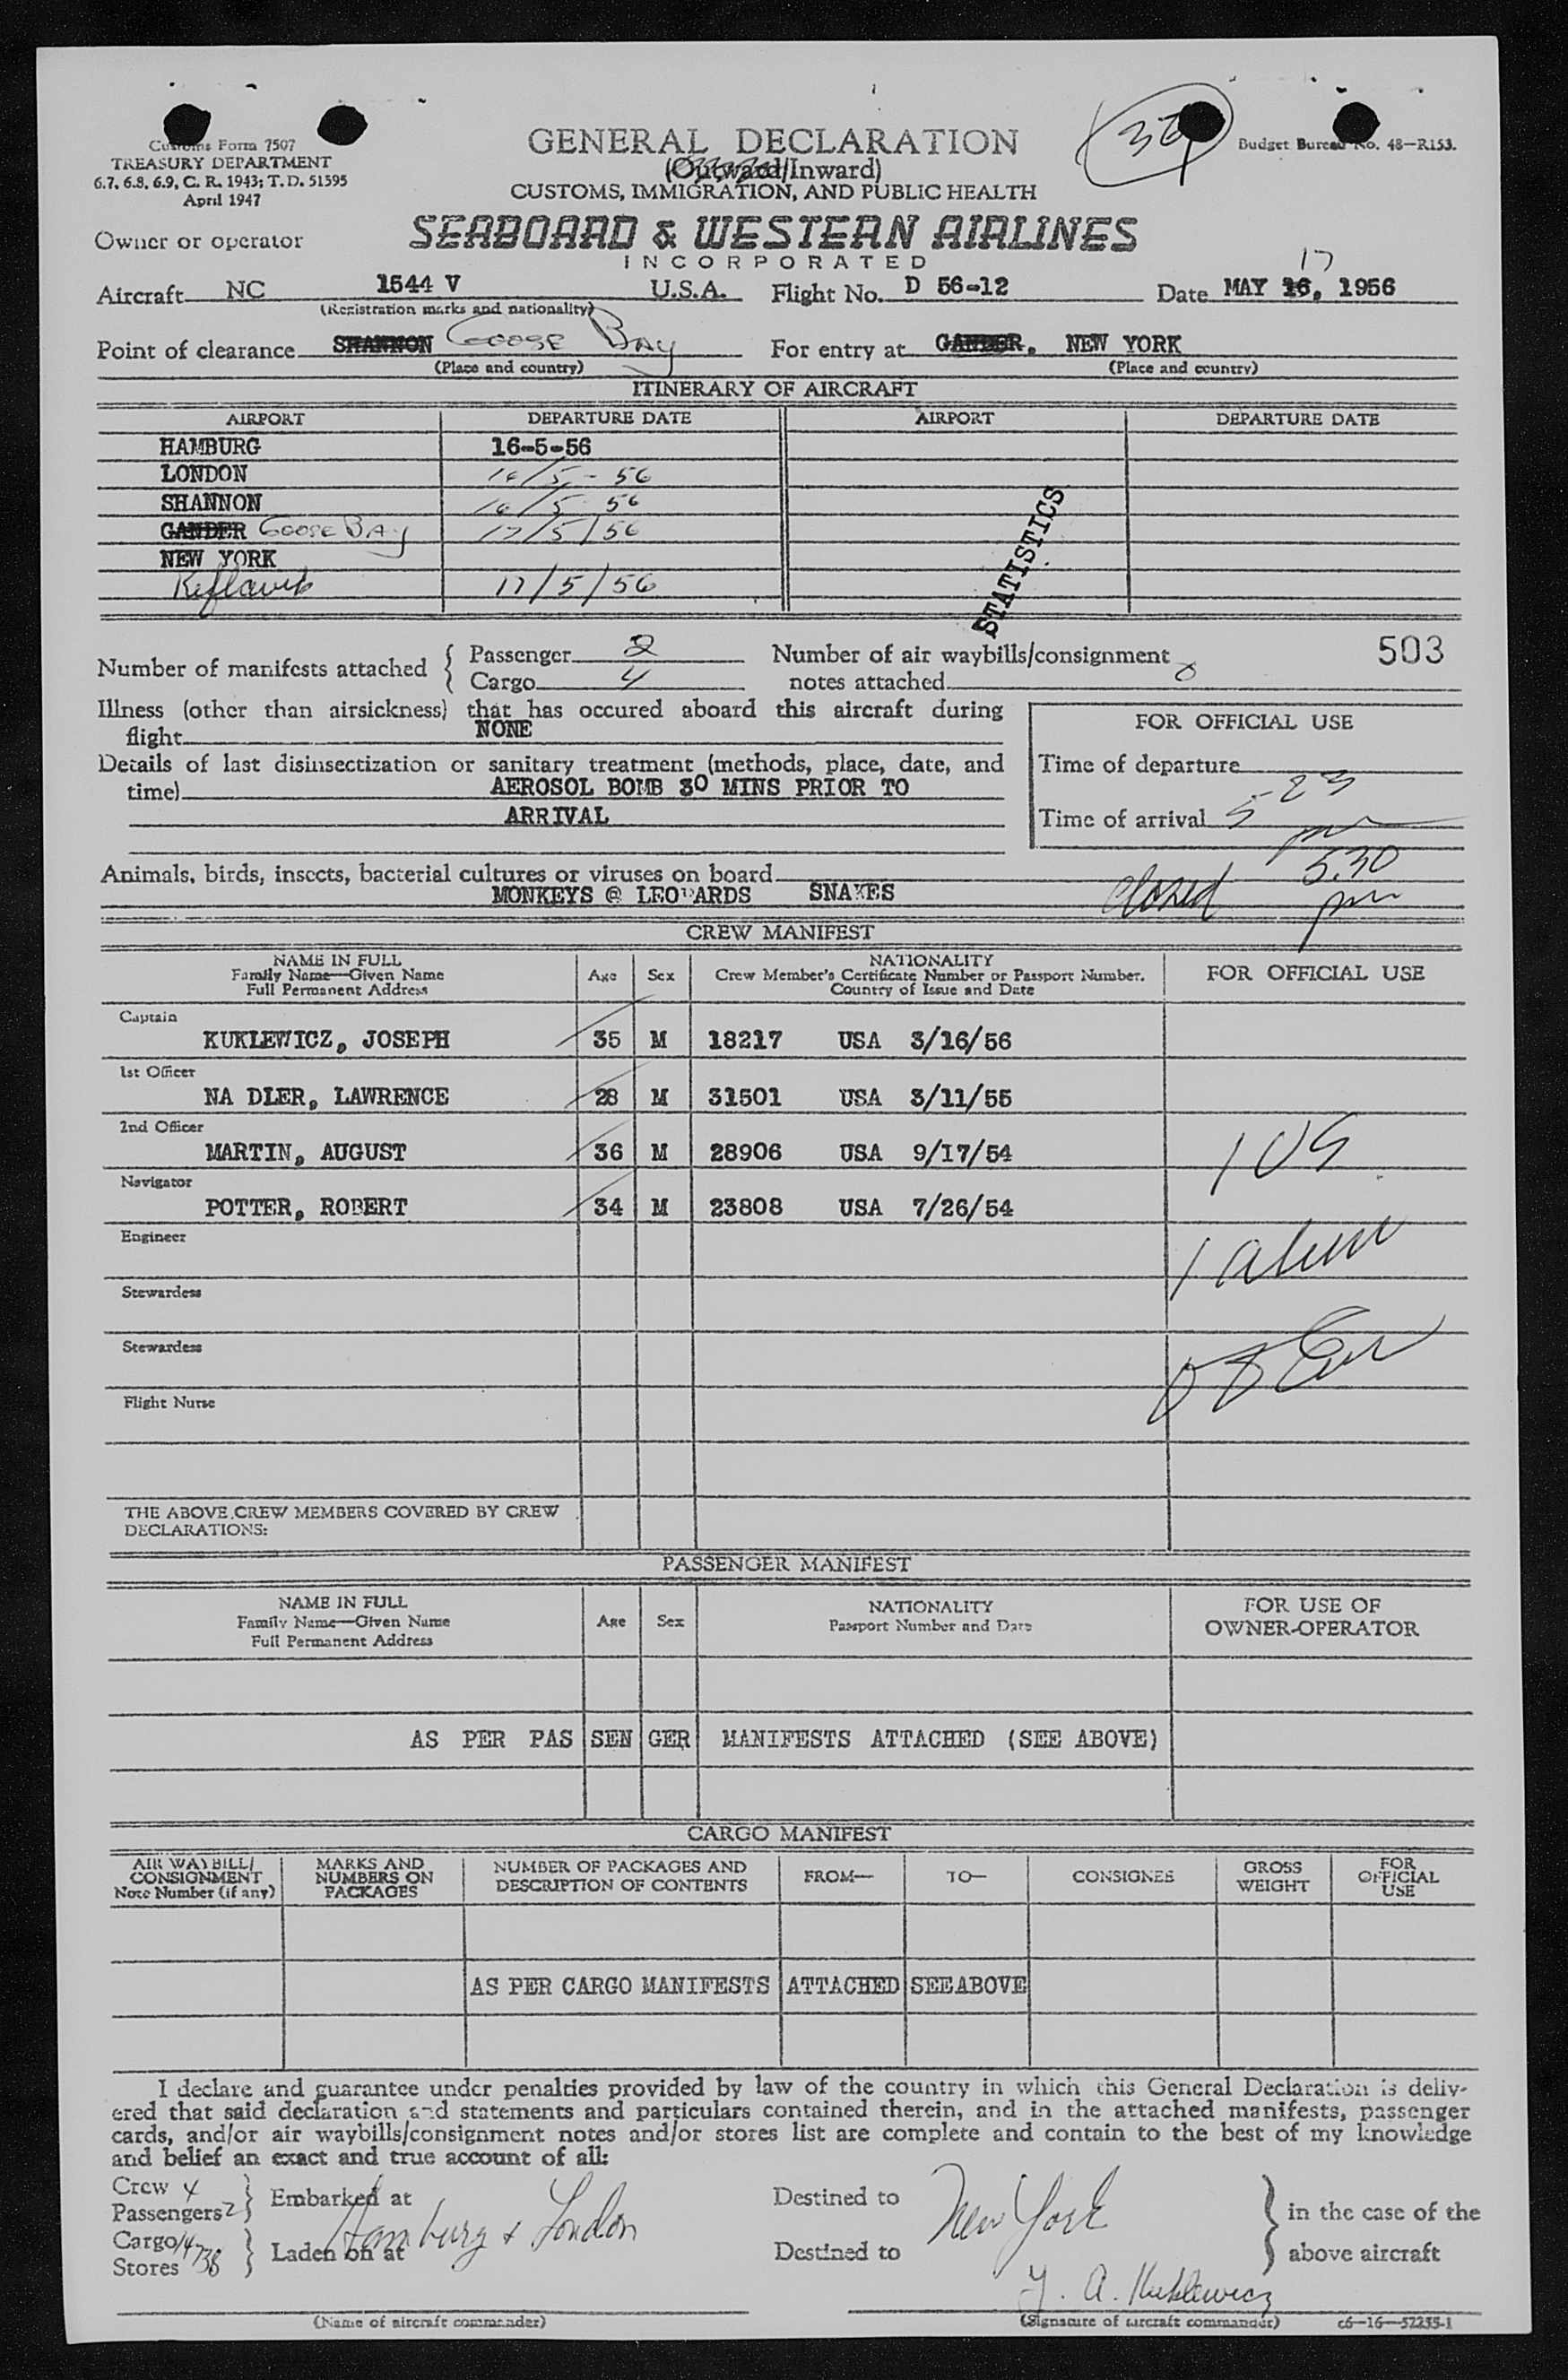 Customs Form 7507
TREASURY DEPARTMENT
6.7, 6.8, 6.9, C. R. 1943; T. D. 51595
April 1947
GENERAL DECLARATION
(Outward/Inward)
CUSTOMS, IMMIGRATION, AND PUBLIC HEALTH
Budget Bureau No. 48—R153.
Owner or operator
SEABOARD & WESTERN AIRLINES
INCORPORATED
17
Aircraft NC 1544 V U.S.A. Flight No. D 56-12 Date MAY 16, 1956
(Registration marks and nationality)
Point of clearance SHANNON Goose Bay For entry at GANDER, NEW YORK
(Place and country) (Place and country)
ITINERARY OF AIRCRAFT
AIRPORT DEPARTURE DATE AIRPORT DEPARTURE DATE
HAMBURG 16-5-56
LONDON 16/5-56
SHANNON 16/5 56
GANDER Goose Bay 17/5/56
NEW YORK
Keflavik 17/5/56
STATISTICS
503
Number of manifests attached { Passenger 2 Number of air waybills/consignment
Cargo 4 notes attached 0
Illness (other than airsickness) that has occured aboard this aircraft during
flight NONE
FOR OFFICIAL USE
Details of last disinsectization or sanitary treatment (methods, place, date, and
time) AEROSOL BOMB 30 MINS PRIOR TO
ARRIVAL
Time of departure
Time of arrival 5 23 pm
Animals, birds, insects, bacterial cultures or viruses on board
MONKEYS @ LEOPARDS SNAKES
closed 5.30 pm
CREW MANIFEST
NAME IN FULL
Family Name—Given Name
Full Permanent Address
Age Sex
NATIONALITY
Crew Member's Certificate Number or Passport Number.
Country of Issue and Date
FOR OFFICIAL USE
Captain
KUKLEWICZ, JOSEPH 35 M 18217 USA 3/16/56
1st Officer
NA DLER, LAWRENCE 28 M 31501 USA 3/11/55
2nd Officer
MARTIN, AUGUST 36 M 28906 USA 9/17/54
Navigator
POTTER, ROBERT 34 M 23808 USA 7/26/54
1 US
Engineer
1 alien
Stewardess
Stewardess
Flight Nurse
THE ABOVE CREW MEMBERS COVERED BY CREW
DECLARATIONS:
PASSENGER MANIFEST
NAME IN FULL
Family Name—Given Name
Full Permanent Address
Age Sex
NATIONALITY
Passport Number and Date
FOR USE OF
OWNER-OPERATOR
AS PER PAS SEN GER MANIFESTS ATTACHED (SEE ABOVE)
CARGO MANIFEST
AIR WAYBILL/
CONSIGNMENT
Note Number (if any)
MARKS AND
NUMBERS ON
PACKAGES
NUMBER OF PACKAGES AND
DESCRIPTION OF CONTENTS
FROM— TO— CONSIGNEE
GROSS
WEIGHT
FOR
OFFICIAL
USE
AS PER CARGO MANIFESTS ATTACHED SEE ABOVE
I declare and guarantee under penalties provided by law of the country in which this General Declaration is deliv-
ered that said declaration and statements and particulars contained therein, and in the attached manifests, passenger
cards, and/or air waybills/consignment notes and/or stores list are complete and contain to the best of my knowledge
and belief an exact and true account of all:
Crew 4
Passengers 2 } Embarked at Destined to
Hamburg + London New York } in the case of the
Cargo 14738
Stores } Laden on at Destined to above aircraft
J. A. Kuklewicz
(Name of aircraft commander) (Signature of aircraft commander) c6—16—52255-1